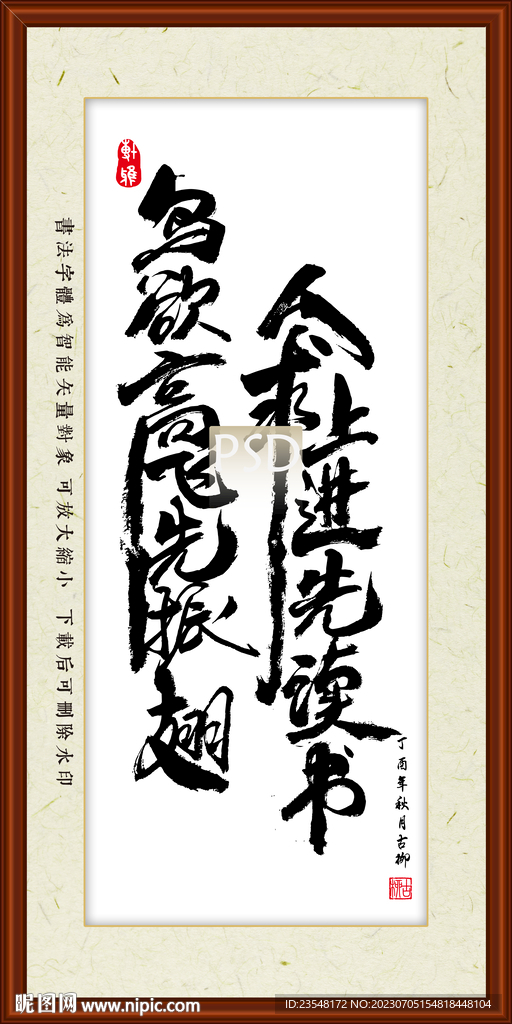 軒雅
鸟欲高飞先振翅
人求上进先读书
丁酉年秋月古柳
書法字體為智能矢量對象 可放大縮小 下載后可刪除水印
PSD
昵图网 www.nipic.com
ID:23548172 NO:20230705154818448104